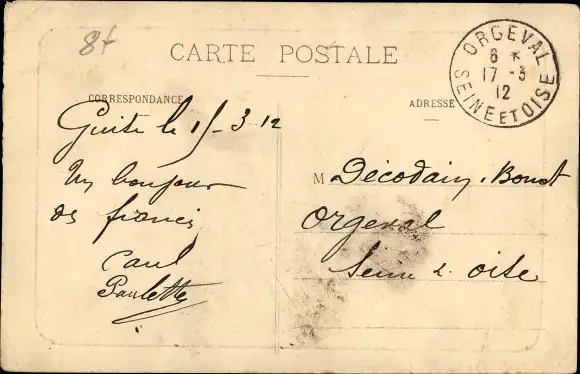 8f
CARTE POSTALE
ORGEVAL
6 *
17 - 3
12
SEINE ET OISE
CORRESPONDANCE
ADRESSE
Guise le 15-3.12
Un bonjour
des
Paul
Paulette
M Décodain. Bonot
Orgeval
Seine & oise